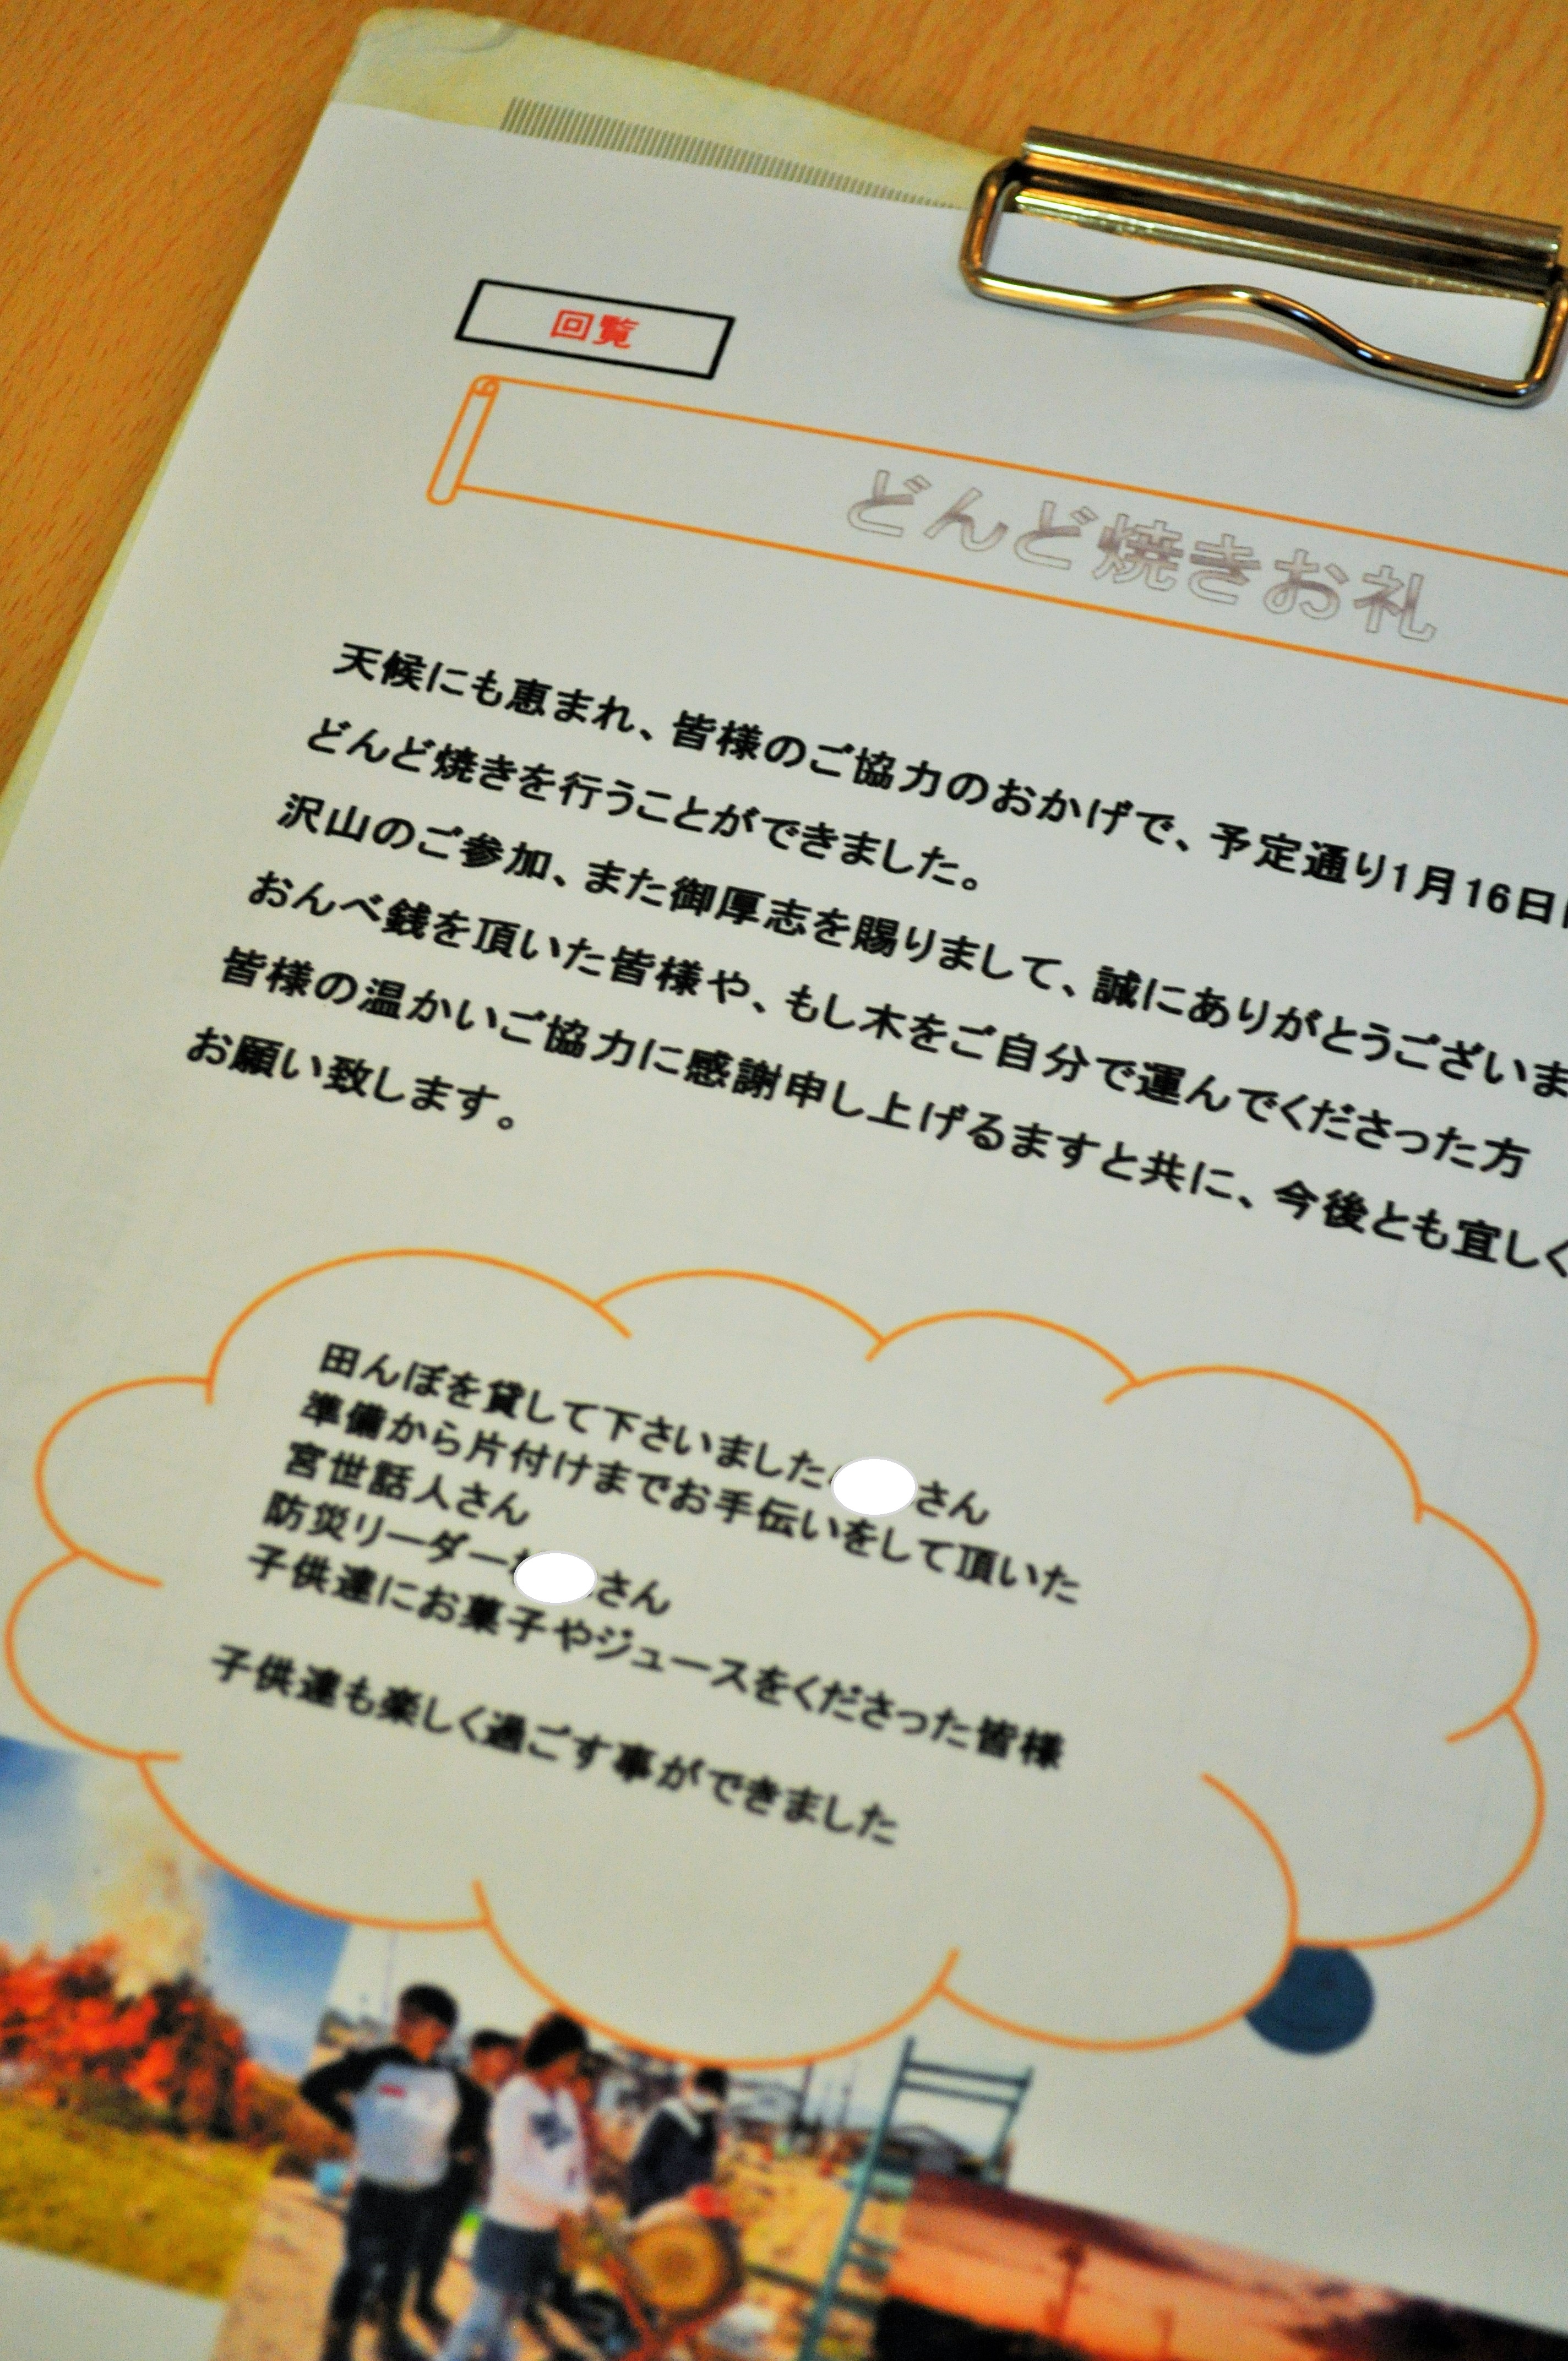 回覧
どんど焼きお礼
天候にも恵まれ、皆様のご協力のおかげで、予定通り1月16日
どんど焼きを行うことができました。
沢山のご参加、また御厚志を賜りまして、誠にありがとうございま
おんべ銭を頂いた皆様や、もし木をご自分で運んでくださった方
皆様の温かいご協力に感謝申し上げるますと共に、今後とも宜しく
お願い致します。
田んぼを貸して下さいました さん
準備から片付けまでお手伝いをして頂いた
宮世話人さん
防災リーダー さん
子供達にお菓子やジュースをくださった皆様
子供達も楽しく過ごす事ができました